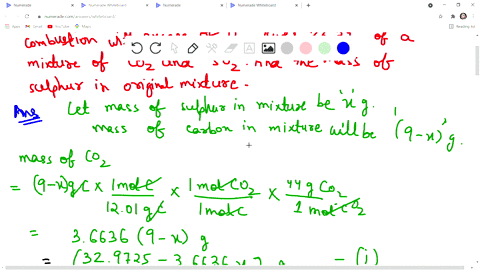 Numerade
Numerade Whiteboard
Numerade
Numerade Whiteboard
combustion of a
mixture of CO2 and SO2. Find the mass of
sulphur in original mixture.
Ans Let mass of sulphur in mixture be 'x' g.
mass of carbon in mixture will be '(9-x)' g.
mass of CO2
= (9-x)gC × 1molC/12.01gC × 1molCO2/1molC × 44gCO2/1molCO2
= 3.6636 (9-x) g
= (32.9725 - 3.6636 x) g - (i)